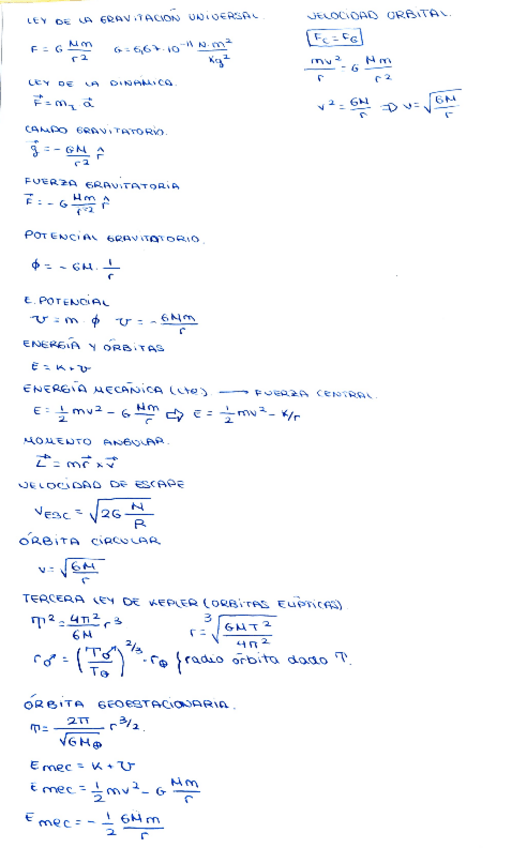 LEY DE LA GRAVITACIÓN UNIVERSAL.
F = G Mm/r² G = 6,67·10⁻¹¹ N·m²/kg²
LEY DE LA DINÁMICA.
F⃗ = m_I a⃗
CAMPO GRAVITATORIO.
g⃗ = - GM/r² r̂
FUERZA GRAVITATORIA
F⃗ = - G Mm/r² r̂
POTENCIAL GRAVITATORIO.
ϕ = - GM · 1/r
E. POTENCIAL
U = m · ϕ U = - GMm/r
ENERGÍA Y ÓRBITAS
E = K + U
ENERGÍA MECÁNICA (cte). → FUERZA CENTRAL.
E = 1/2 mv² - G Mm/r ⇨ E = 1/2 mv² - K/r
MOMENTO ANGULAR.
L⃗ = m r⃗ × v⃗
VELOCIDAD DE ESCAPE
V_ESC = √(2G M/R)
ÓRBITA CIRCULAR
v = √(GM/r)
TERCERA LEY DE KEPLER (ORBITAS ELÍPTICAS)
T² = 4π²/GM r³ r = ³√(GMT²/4π²)
r♂ = (T♂/T⊕)^2/3 · r⊕ { radio órbita dado T.
ÓRBITA GEOESTACIONARIA.
T = 2π/√(GM⊕) r^3/2.
E mec = K + U
E mec = 1/2 mv² - G Mm/r
E mec = - 1/2 GMm/r
VELOCIDAD ORBITAL.
F_C = F_G
mv²/r = G Mm/r²
v² = GM/r ⇒ v = √(GM/r)